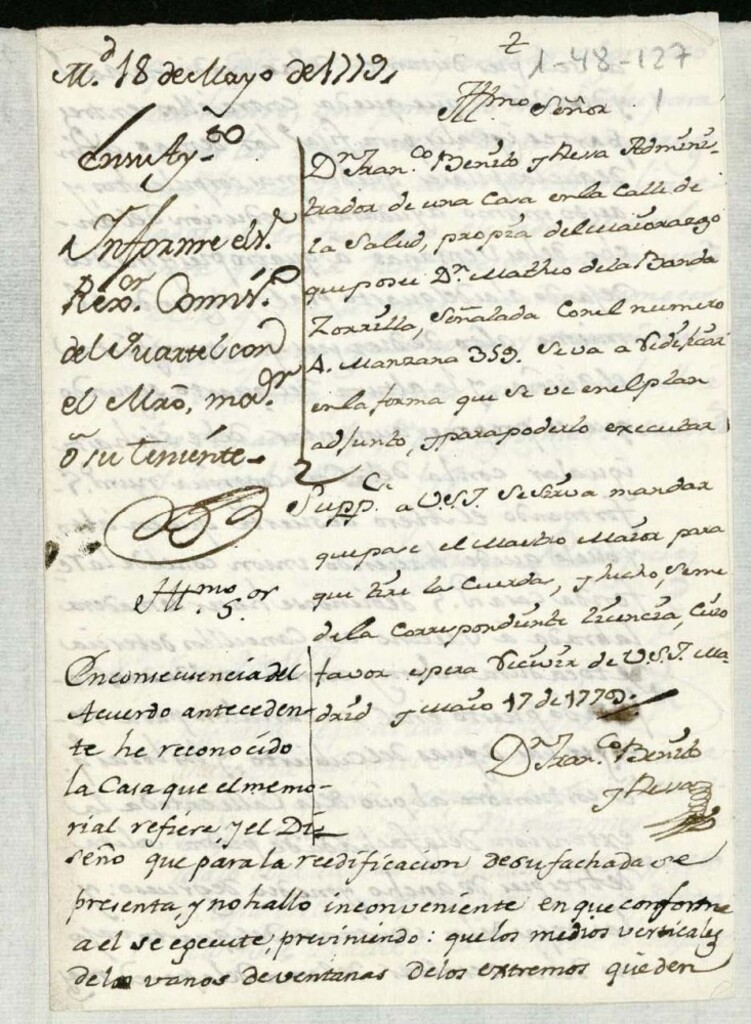 2
1-48-127
1
M.d 18 de Mayo de 1779,
En su Ay.to
Informe el S.r
Rexor. Comis.o
del Quartel con
el Mro, mor.
ò su teniente.
Illmo Señor
Dn. Fran.co Benito y Reva Adminis-
trador de una Casa en la Calle de
la Salud, propria del Maiorazgo
que posee Dn. Matheo de la Banda
Zorrilla, Señalada con el numero
4. Manzana 359. se va a redificar
en la forma que se ve en el plan
adjunto, y para poderlo executar
Suppca. a V.S.I. se sirva mandar
que pase el Maestro Maior, para
que tire la Cuerda, y hecho, se me
de la Correspondiente licencia, Cuio
favor espera recivir de V.S.I. Ma-
drid y Maio 17 de 1779.
Dn. Fran.co Benito
y Reva
Illmo. S.or
En consecuencia del
Acuerdo anteceden-
te he reconocido
la Casa que el memo-
rial refiere y el Di-
seño que para la reedificacion de su fachada se
presenta, y no hallo inconveniente en que conforme
a el se egecute, previniendo: que los medios verticales
de los vanos de ventanas de los extremos queden